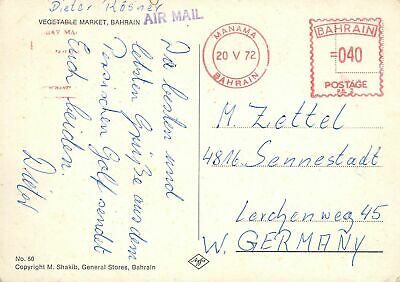 Dieter Rösner
VEGETABLE MARKET, BAHRAIN
AIR MAIL
MANAMA
20 V 72
BAHRAIN
BAHRAIN
040
POSTAGE
Die besten und
letzten Grüße aus dem
Persischen Golf sendet
Euch beiden.
Dieter
M. Zettel
4816 Sennestadt
Lerchenweg 45
W. GERMANY
No. 50
Copyright M. Shakib, General Stores, Bahrain
Agfa